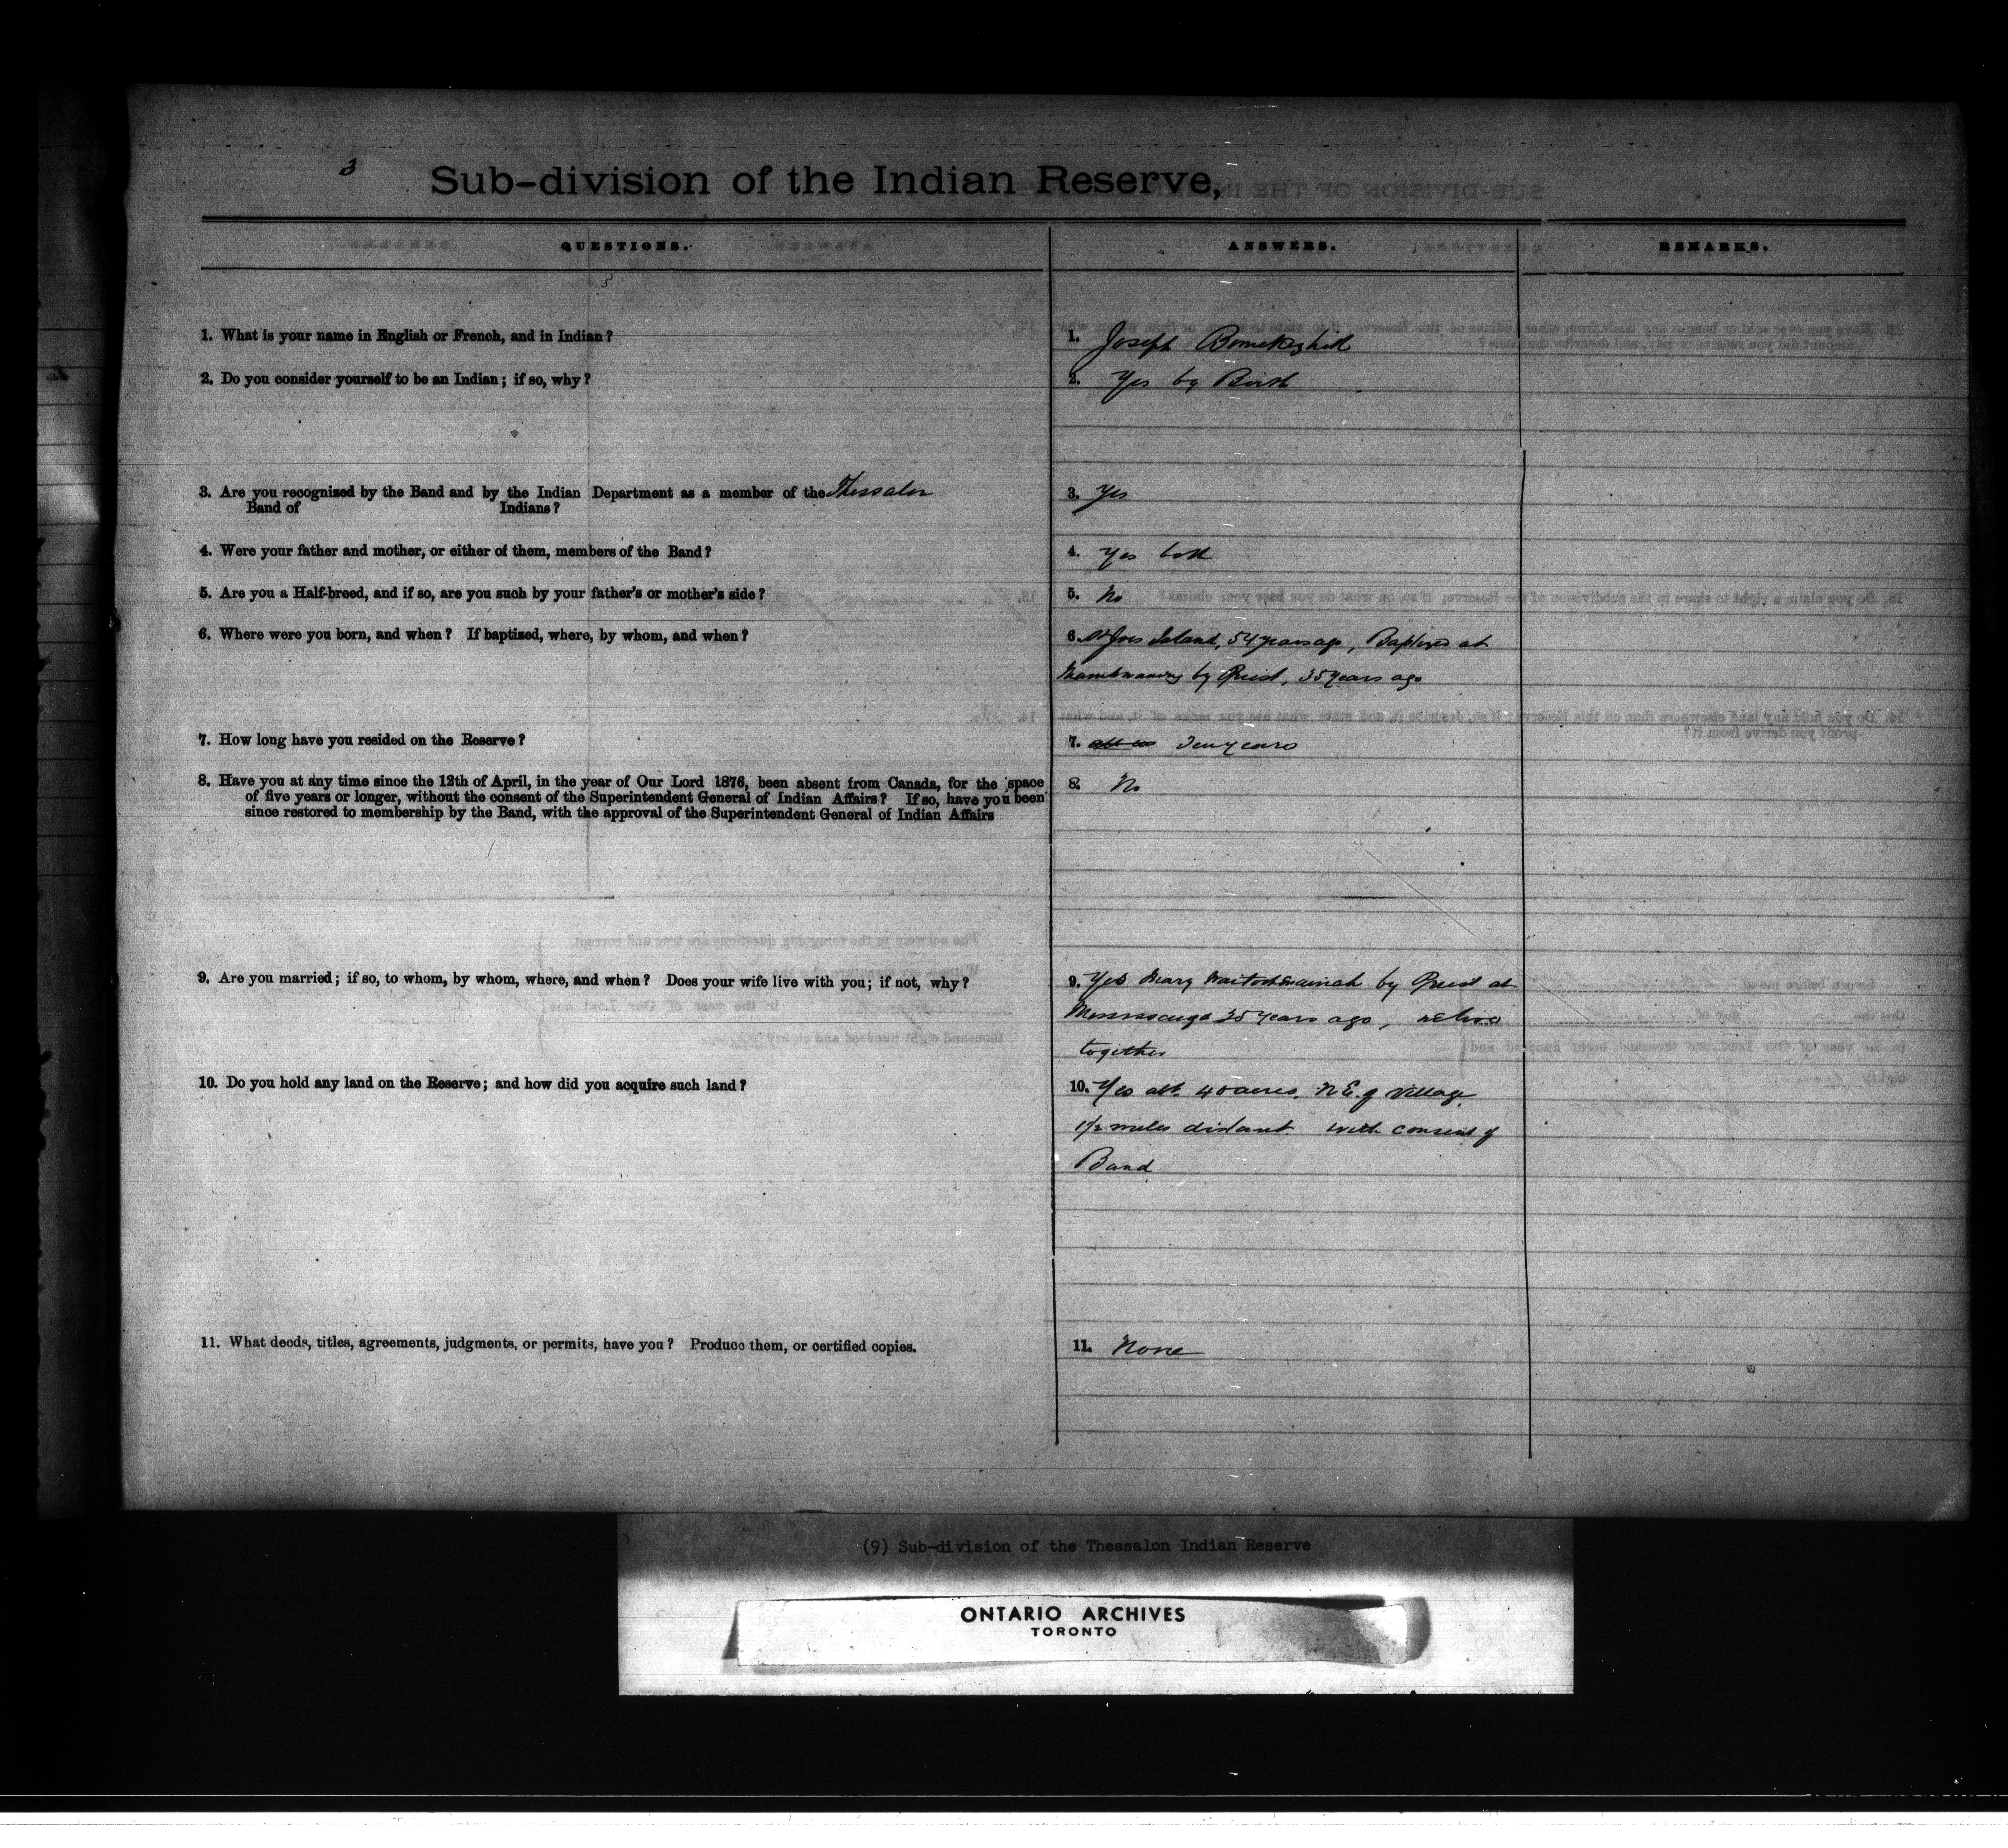 3
Sub-division of the Indian Reserve,
QUESTIONS. ANSWERS. REMARKS.
1. What is your name in English or French, and in Indian?
1. Joseph
2. Do you consider yourself to be an Indian; if so, why?
2. Yes by Birth
3. Are you recognized by the Band and by the Indian Department as a member of the Thessalon
Band of Indians?
3. Yes
4. Were your father and mother, or either of them, members of the Band?
4. Yes both
5. Are you a Half-breed, and if so, are you such by your father's or mother's side?
5. No
6. Where were you born, and when? If baptized, where, by whom, and when?
6. St Jos Island, 54 years ago, Baptized at
by Priest, 35 years ago
7. How long have you resided on the Reserve?
7. Ten years
8. Have you at any time since the 12th of April, in the year of Our Lord 1876, been absent from Canada, for the space
of five years or longer, without the consent of the Superintendent General of Indian Affairs? If so, have you been
since restored to membership by the Band, with the approval of the Superintendent General of Indian Affairs
8. No
9. Are you married; if so, to whom, by whom, where, and when? Does your wife live with you; if not, why?
9. Yes Mary by Priest at
Mississauga 35 years ago, we live
together
10. Do you hold any land on the Reserve; and how did you acquire such land?
10. Yes abt. 40 acres. N.E. of Village
1½ miles distant. with consent of
Band
11. What deeds, titles, agreements, judgments, or permits, have you? Produce them, or certified copies.
11. None
(9) Sub-division of the Thessalon Indian Reserve
ONTARIO ARCHIVES
TORONTO